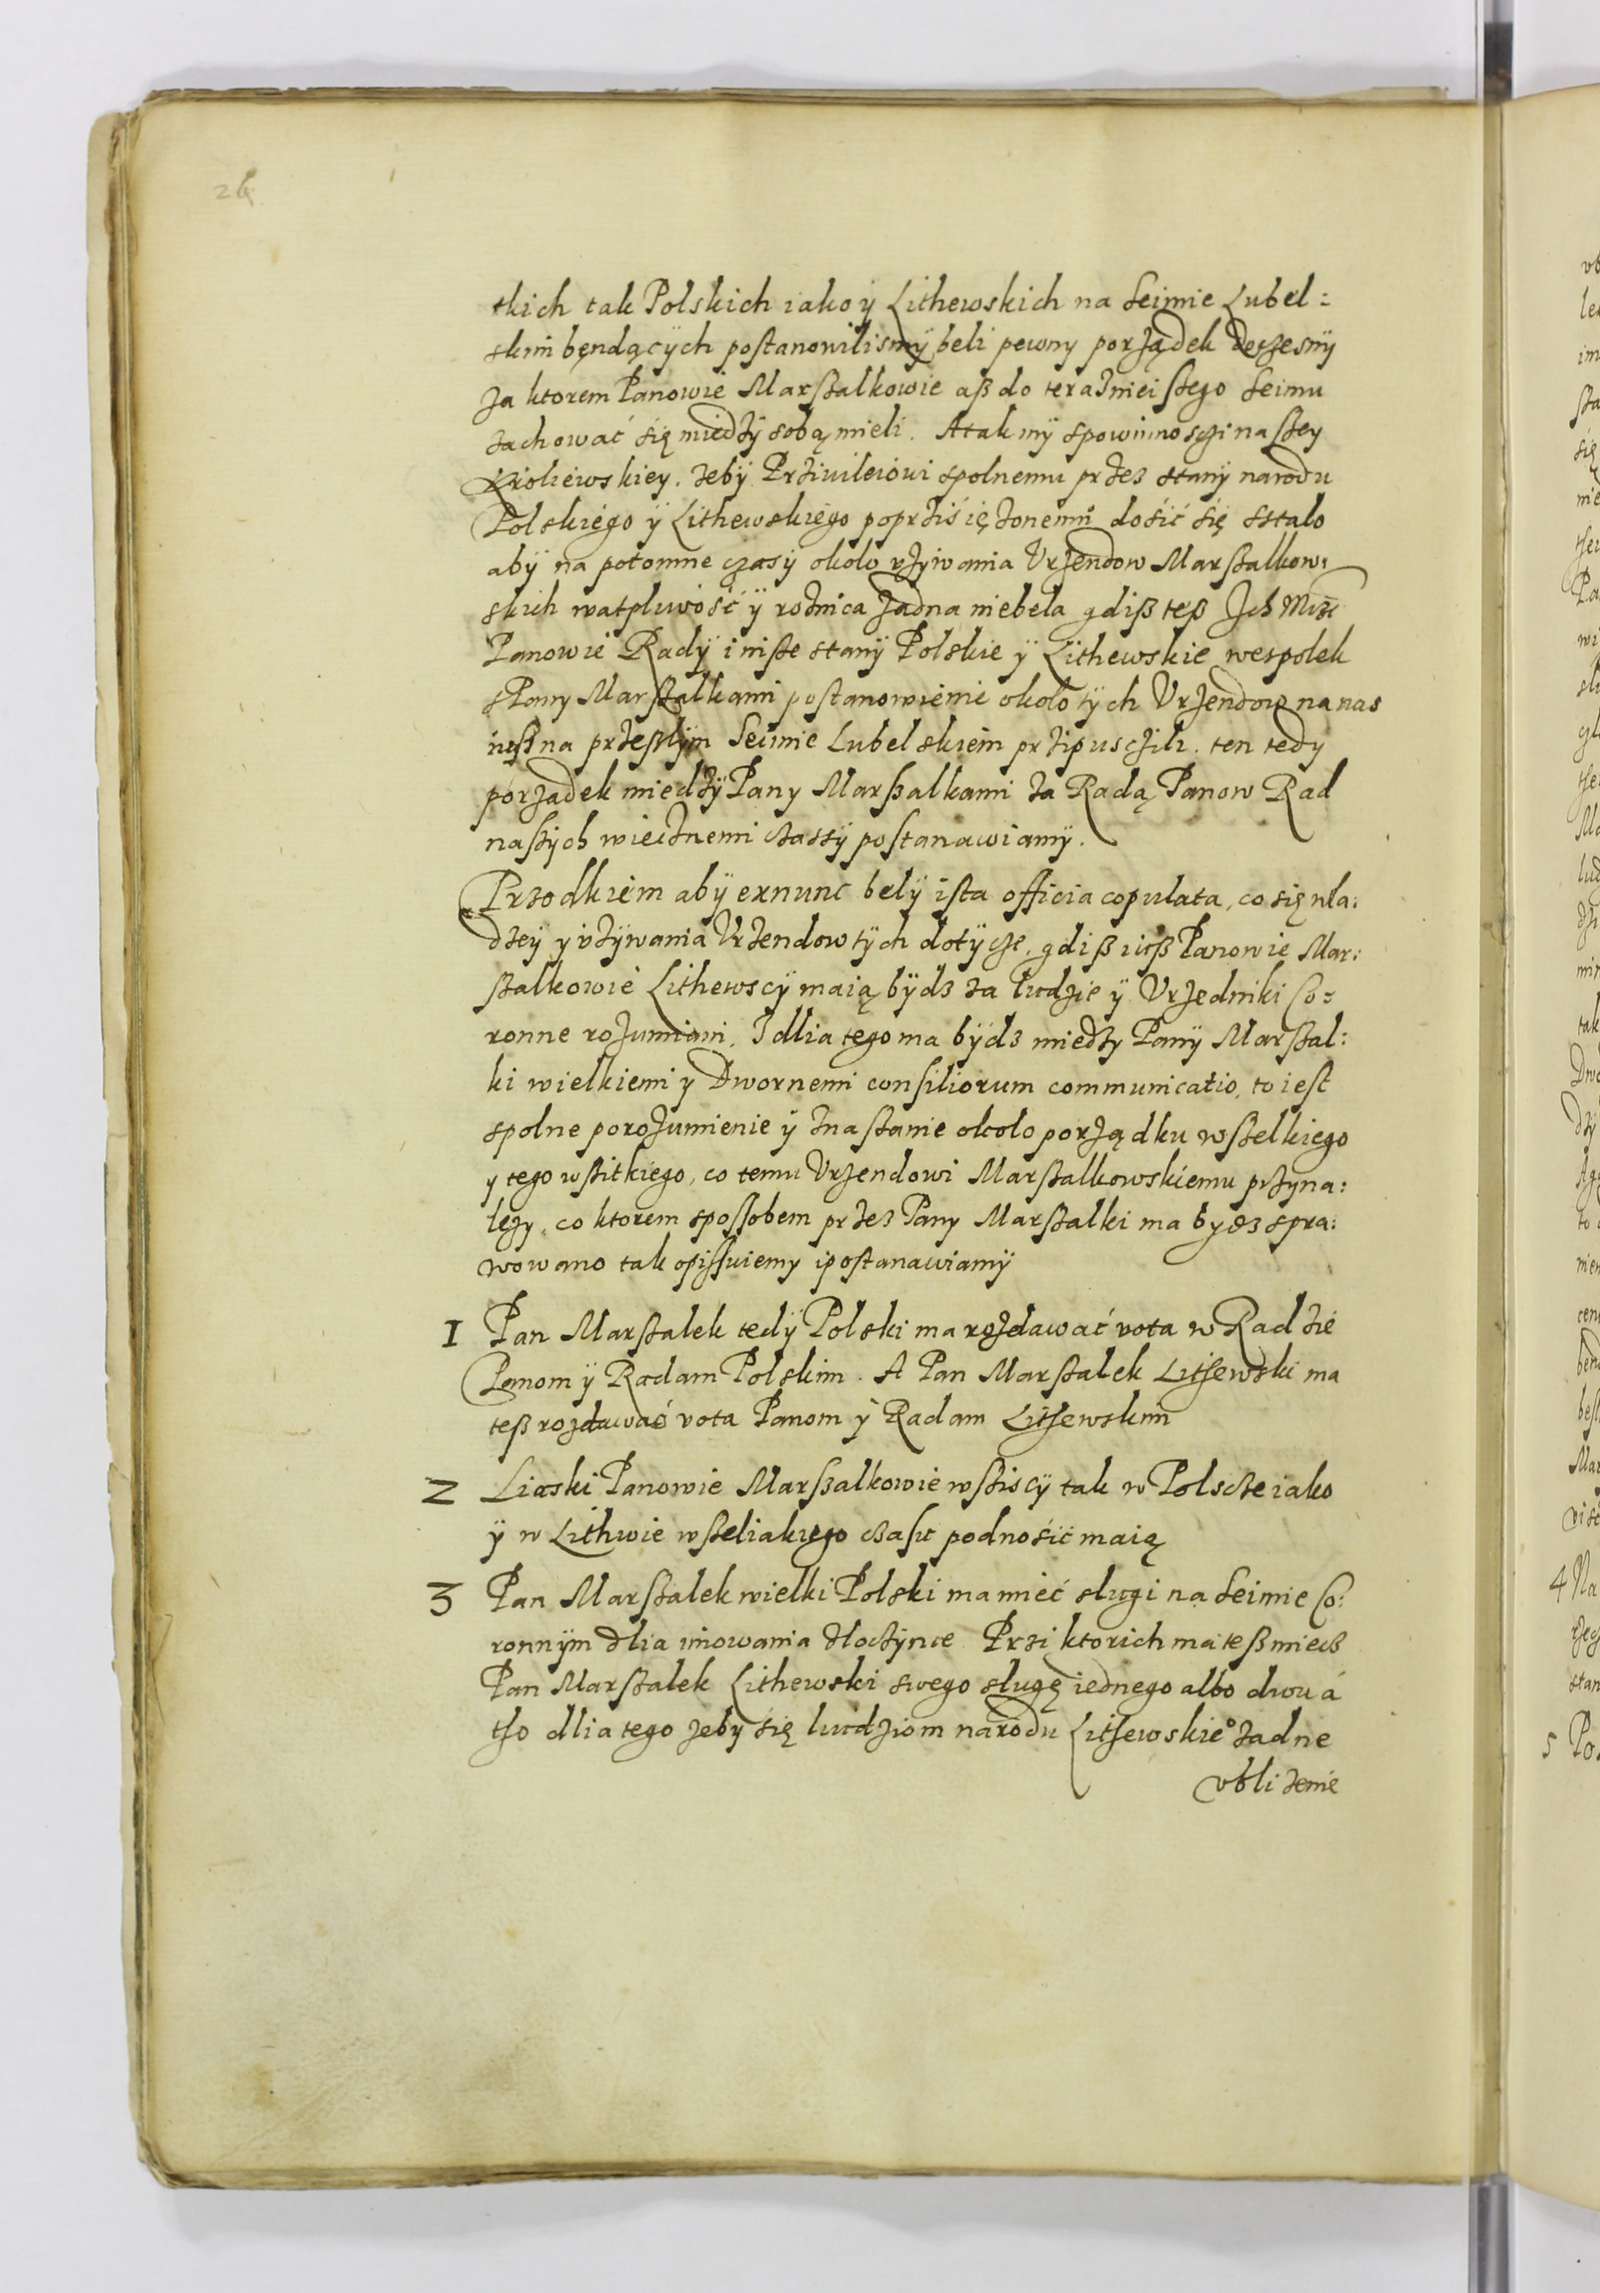 26
tkich tak Polskich iako ÿ Lithewskich na Seimie Lubel:
skim będącÿch postanowilismÿ beli pewny porządek doczesnÿ
za ktorem Panowie Marszalkowie asz do terazniejszego Seimu
zachować się miedzÿ sobą mieli. A tak mÿ spowinnosczi naszey
Kroliewskiey. żebÿ Prziwileiowi spolnemu przez stanÿ narodu
Polskiego ÿ Lithewskiego poprziśiężonemu dosić się sstalo
abÿ na potomne czasÿ okolo vżywania Vrzendow Marszalkow:
skich watpliwość ÿ roznica żadna niebela gdisz tesz Ich Msc
Panowie Radÿ i insze stanÿ Polskie ÿ Lithewskie wespolek
s Pany Marszalkami postanowienie okolo tÿch Vrzendow na nas
iusz na przeszlÿm Seimie Lubelskiem przipuscżili. ten tedy
porządek miedzÿ Pany Marszalkami za Radą Panow Rad
naszÿch wiecznemi czassÿ postanawiamÿ.
Przodkiem abÿ exnunc belÿ ista officia copulata, co się wla:
dzeÿ y vżÿwania Vrzendow tÿch dotÿcze. gdisz iusz Panowie Mar:
szalkowie Lithewscÿ maią bÿdz za ludzie ÿ Vrzedniki Co:
ronne rozumiani. I dlia tego ma bÿdz miedzy Panÿ Marszal:
ki wielkiemi y Dwornemi consiliorum communicatio, to iest
spolne porozumienie ÿ znaszanie okolo porządku wszelkiego
y tego wszitkiego, co temu Vrzendowi Marszalkowskiemu przyna:
leży, co ktorem spossobem przez Pany Marszalki ma bydz spra:
wowano tak opissuiemy i postanawiamÿ
1 Pan Marszalek tedÿ Polski ma rozdawać vota w Radzie
Panom ÿ Radam Polskim. A Pan Marszalek Lithewski ma
tesz rozdawać vota Panom ÿ Radam Lithewskim
2 Liaski Panowie Marszalkowie wsziscÿ tak w Polscze iako
ÿ w Lithwie wszeliakiego czasu podnosić maią
3 Pan Marszalek wielki Polski ma mieć slugi na Seimie Co:
ronnÿm dlia imowania zloczÿnce Przi ktorich ma tesz miecz
Pan Marszalek Lithewski swego slugę iednego albo dwu á
tho dlia tego żeby się ludziom narodu Lithewskie° żadne
vbliżenie
4
5